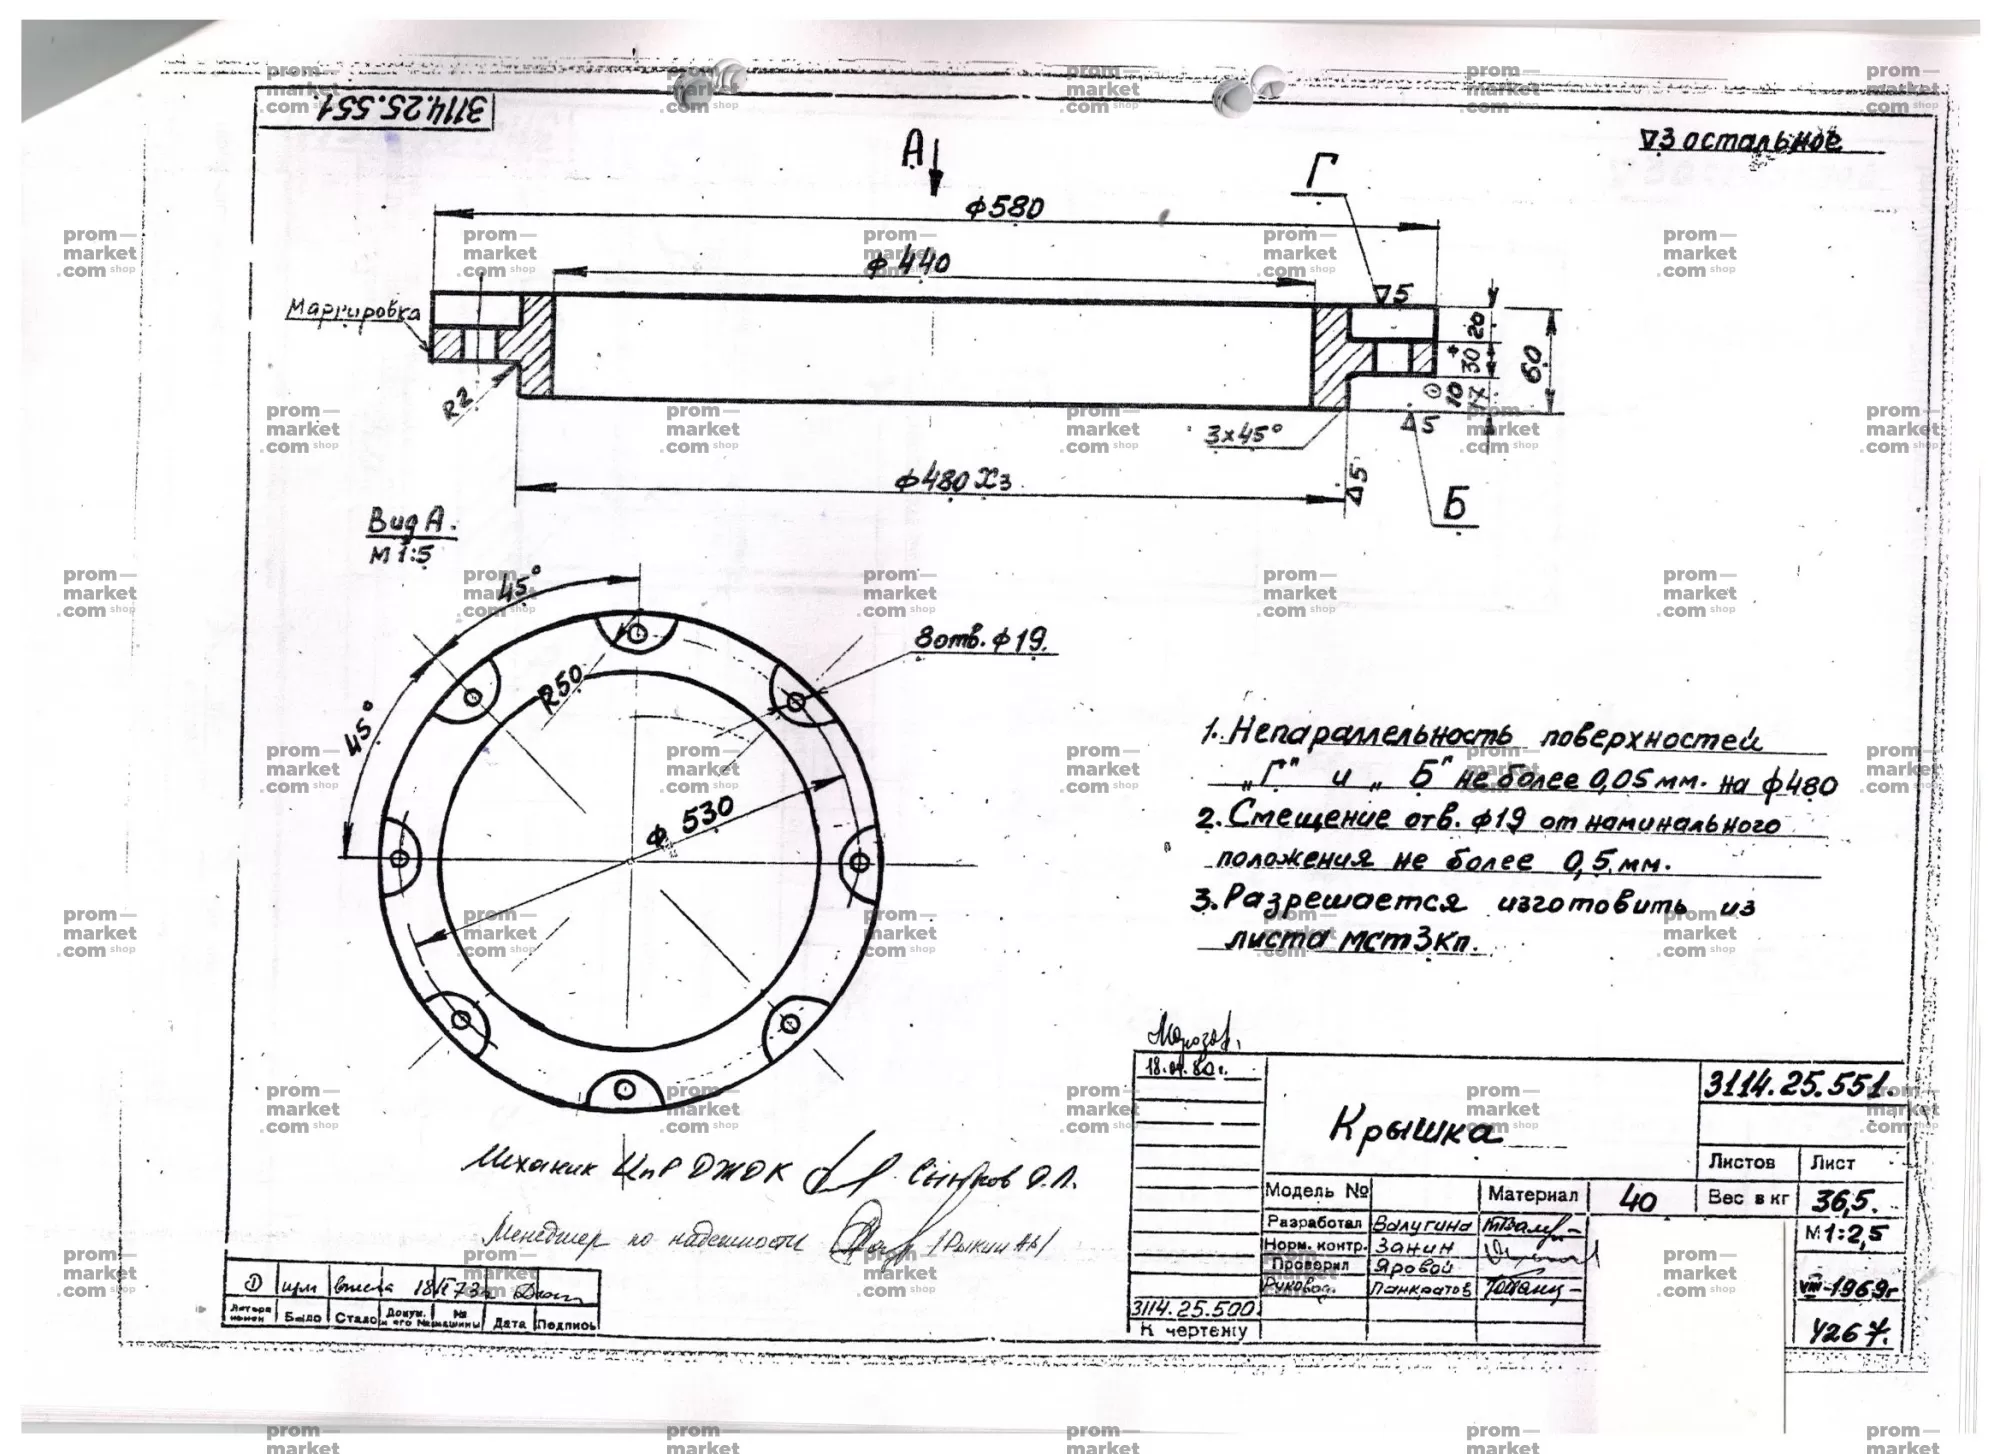 3114.25.551
▽3 остальное
А
Г
ϕ580
ϕ440
▽5
Маркировка
20
30
60
10
17
R2
3х45°
▽5
ϕ480 Х3
▽5
Б
Вид А.
М 1:5
45°
45°
R50
8 отв. ϕ19.
ϕ 530
1. Непараллельность поверхностей
„Г" и „Б" не более 0,05 мм. на ϕ480
2. Смещение отв. ϕ19 от наминального
положения не более 0,5 мм.
3. Разрешается изготовить из
листа мст3кп.
18.04.80г.
3114.25.551.
Крышка
Листов Лист
Модель № Материал 40 Вес в кг 36,5.
Разработал Валугина М1:2,5
Норм. контр. Занин
Проверил Яровой
Руковод. Панкратов VIII-1969г
3114.25.500
К чертежу
Механик ЦПР ДЖОК
Менеджер по надежности
Литера измен Было Стало Докум. и его № № машины Дата Подпись
prom—
market
.com shop